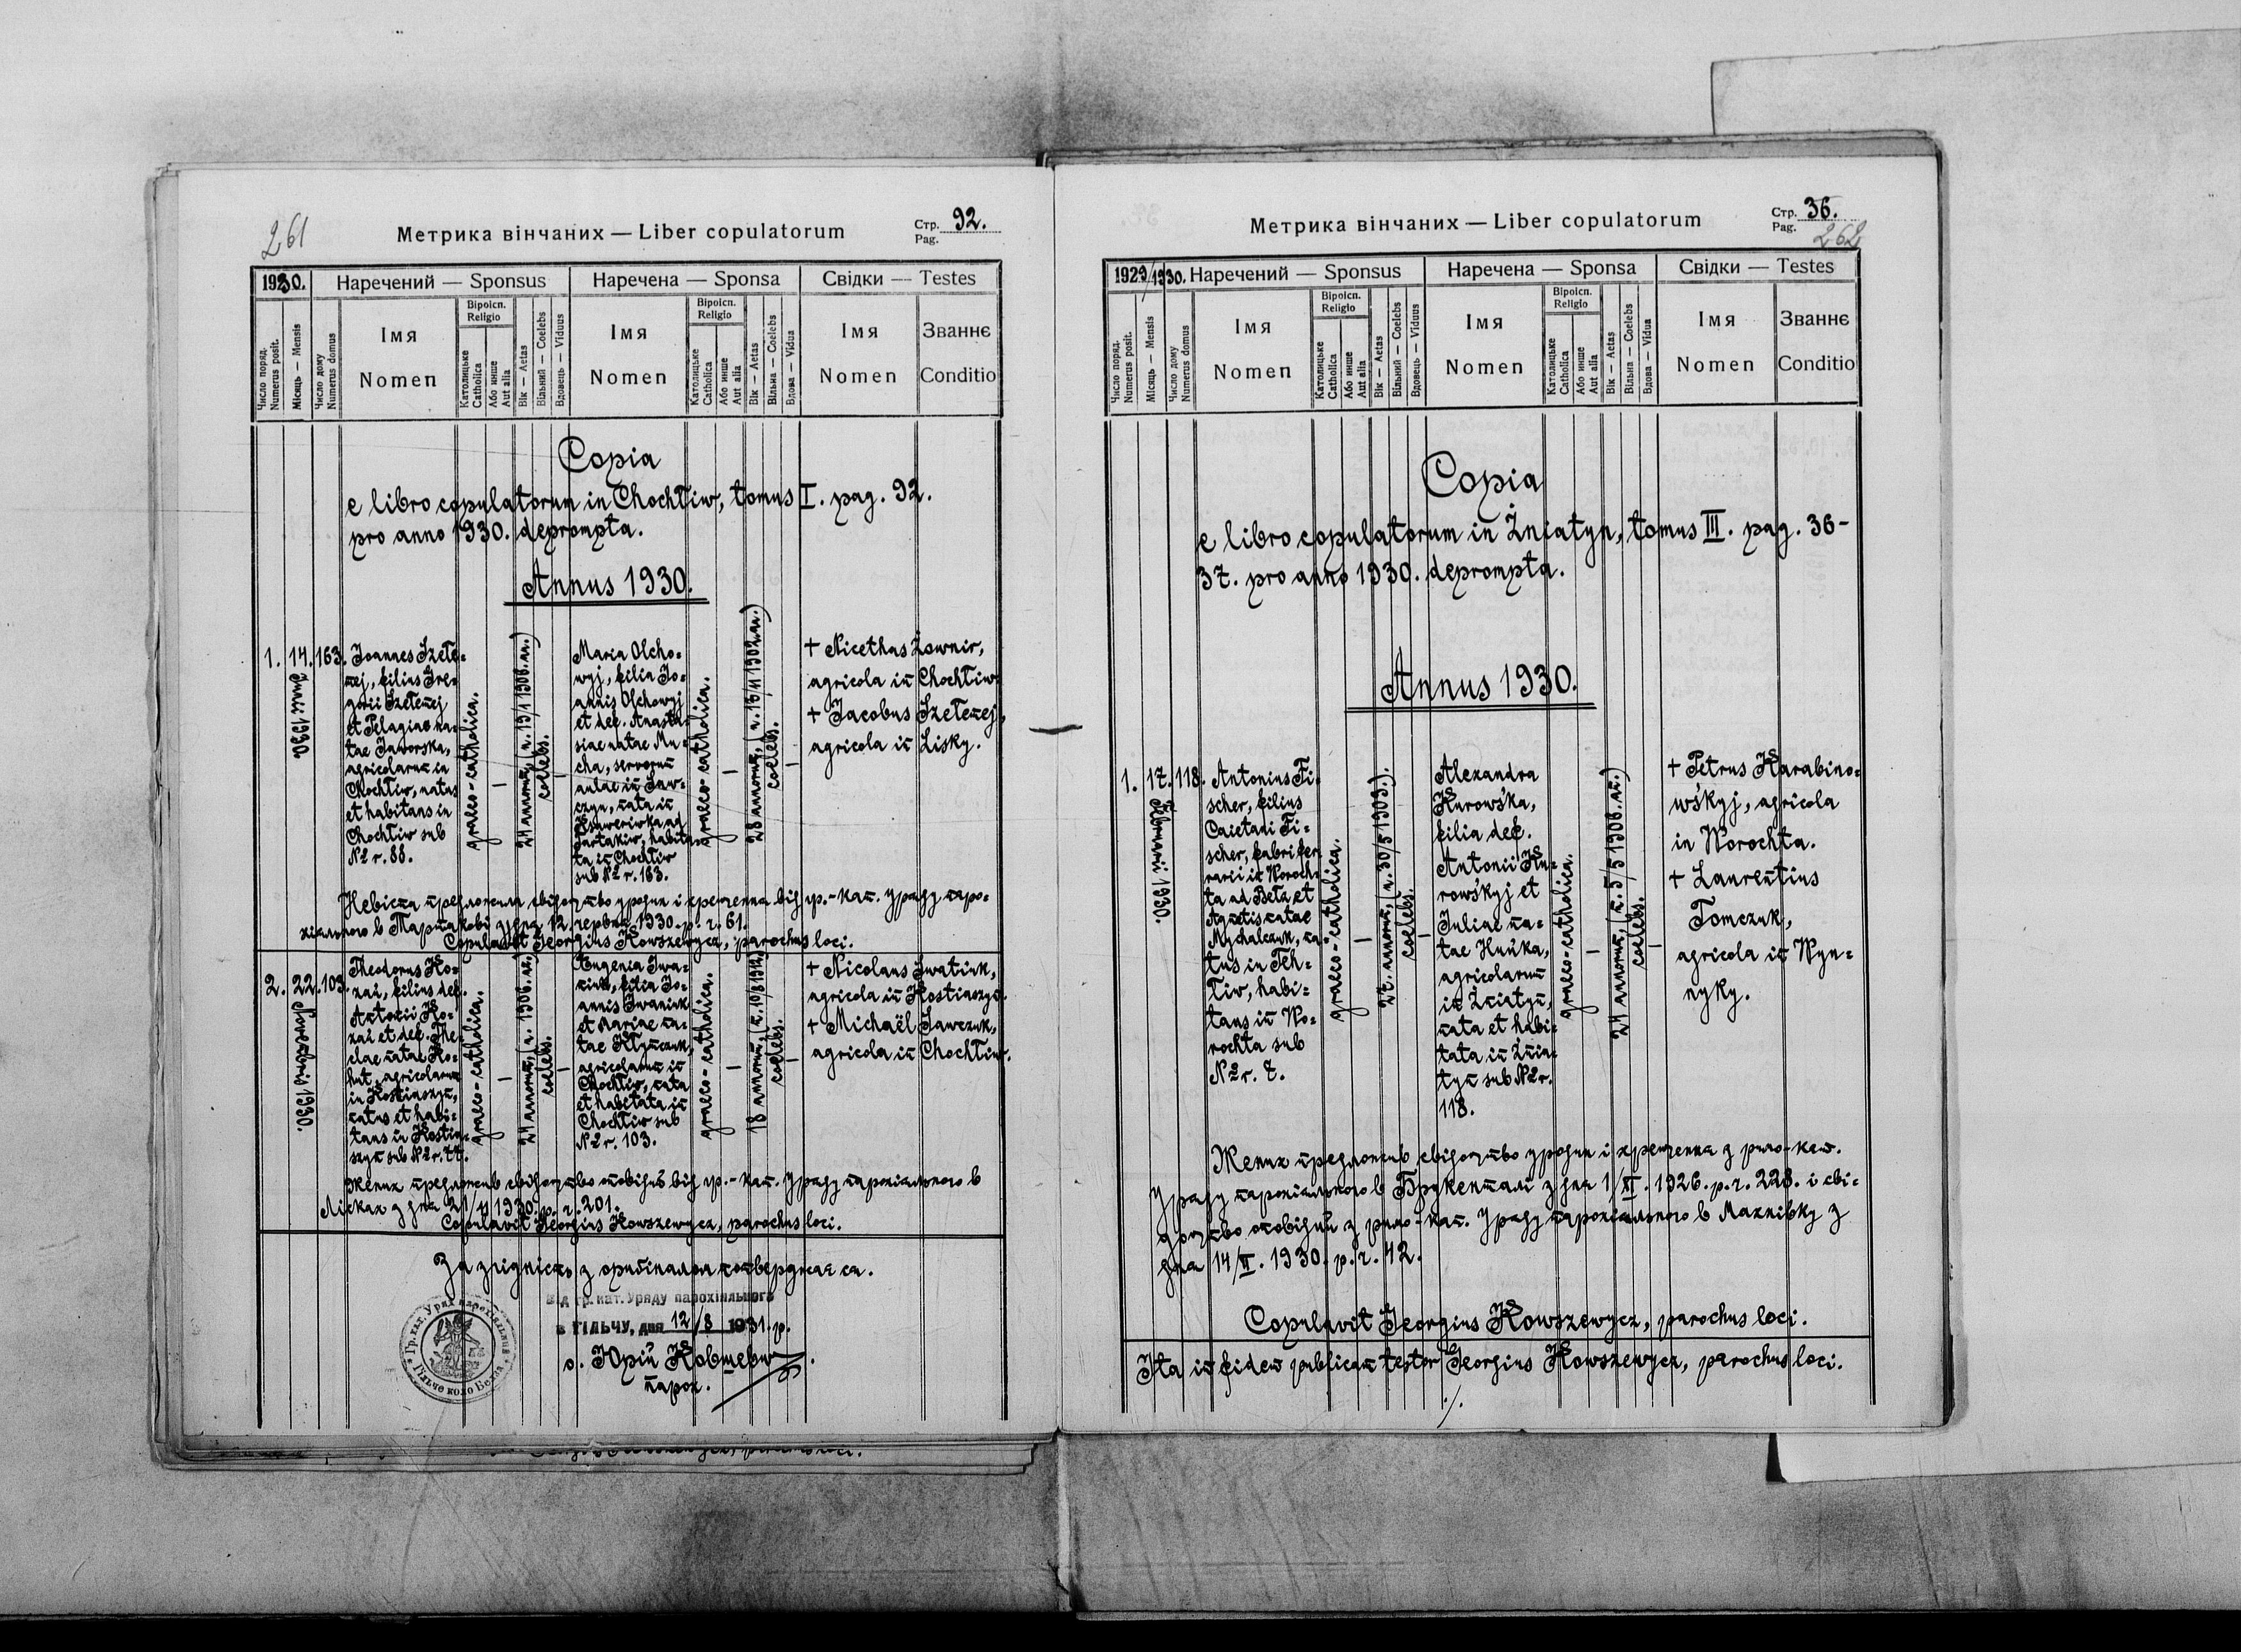 261
Метрика вінчаних — Liber copulatorum
Стр. 92.
Pag.
1930.
Наречений — Sponsus
Наречена — Sponsa
Свідки — Testes
Число поряд. Numerus posit.
Місяць — Mensis
Число дому Numerus domus
Імя
Nomen
Віроісп.
Religio
Католицьке Catholica
Або инше Aut alia
Вік — Aetas
Вільний — Coelebs
Вдовець — Viduus
Імя
Nomen
Віроісп.
Religio
Католицьке Catholica
Або инше Aut alia
Вік — Aetas
Вільна — Coelebs
Вдова — Vidua
Імя
Nomen
Званнє
Conditio
Copia
e libro copulatorum in Chochłiw, tomus I. pag. 92.
pro anno 1930. deprompta.
Annus 1930.
1.
14. Junii 1930.
163.
Joannes Szełe=
zej, filius Gre=
gorii Szełezej
et Pelagiae na=
tae Jaworska,
agricolarum in
Chochłiw, natus
et habitans in
Chochłiw sub
№ r. 88.
graeco-catholica.
—
24 annorum,
coelebs.
—
Maria Olcho=
wyj, filia Jo=
annis Olchowyj
et def. Anasta=
siae natae Mu=
cha, servorum
aulae in Saw=
czyn, nata in
Ksaweriwka ad
Tartakiw, habita=
ta in Chochłiw
sub № r. 163.
graeco-catholica.
—
28 annorum,
coelebs.
—
+ Nicethas Żownir,
agricola in Chochłiw
+ Jacobus Szełezej,
agricola in Lisky.
Невіста предложила свідоцтво уродин і хрещення від гр.-кат. Уряду паро=
хіяльного в Тартакові з дня 12. червня 1930. р. ч. 61.
Copulavit Georgius Kowszewycz, parochus loci.
2.
22. Novembris 1930.
103.
Theodorus Ko=
zai, filius def.
Antonii Ko=
zai et def. The=
clae natae Ko=
hut, agricolarum
in Kostiaszyn,
natus et habi=
tans in Kostia=
szyn sub № r. 77.
graeco-catholica.
—
24 annorum, (n. 1906. r.)
coelebs.
—
Eugenia Iwa=
niuk, filia Jo=
annis Iwaniuk
et Mariae na=
tae Klymczuk,
agricolarum in
Chochłiw, nata
et habitata in
Chochłiw sub
№ r. 103.
graeco-catholica.
—
18 annorum, (n. 10/8 1912.)
coelebs.
—
+ Nicolaus Iwaniuk,
agricola in Kostiaszyn
+ Michaël Sawczuk,
agricola in Chochłiw.
Жених предложив свідоцтво оповідий від гр.-кат. Уряду парохіяльного в
Лісках з дня 21/11 1930. р. ч. 201.
Copulavit Georgius Kowszewycz, parochus loci.
За згідність з оригіналом потверджає ся.
Від гр. кат. Уряду парохіяльного
в ГІЛЬЧУ, дня 12/8 1931. р.
о. Юрій Ковшевич.
парох.
Гр. кат. Уряд парохіяльний
Гільче коло Белза
Метрика вінчаних — Liber copulatorum
Стр. 36.
Pag.
262
1929/1930.
Наречений — Sponsus
Наречена — Sponsa
Свідки — Testes
Число поряд. Numerus posit.
Місяць — Mensis
Число дому Numerus domus
Імя
Nomen
Віроісп.
Religio
Католицьке Catholica
Або инше Aut alia
Вік — Aetas
Вільний — Coelebs
Вдовець — Viduus
Імя
Nomen
Віроісп.
Religio
Католицьке Catholica
Або инше Aut alia
Вік — Aetas
Вільна — Coelebs
Вдова — Vidua
Імя
Nomen
Званнє
Conditio
Copia
e libro copulatorum in Żniatyn, tomus III. pag. 36-
37. pro anno 1930. deprompta.
Annus 1930.
1.
17. Februarii 1930.
118.
Antonius Fi=
scher, filius
Caietani Fi=
scher, fabri fer=
rarii in Woroch=
ta ad Betz, et
Agnetis natae
Mychalczuk, na=
tus in Teh=
liw, habi=
tans in Wo=
rochta sub
№ r. 7.
graeco-catholica.
—
27. annorum, (n. 30/5 1903.).
coelebs.
—
Alexandra
Kurowśka,
filia def.
Antonii Ku=
rowśkyj et
Juliae na=
tae Huńka,
agricolarum
in Żniatyn,
nata et habi=
tata in Żnia=
tyn sub № r.
118.
graeco-catholica.
—
24 annorum, (n. 5/5 1906. r.)
coelebs.
—
+ Petrus Harabino=
wśkyj, agricola
in Worochta.
+ Laurentius
Tomczuk,
agricola in Wyn=
nyky.
Жених предложив свідоцтво уродин і хрещення з римо-кат.
Уряду парохіяльного в Брукенталі з дня 1/XI. 1926. р. ч. 228. і сві=
доцтво оповідий з римо-кат. Уряду парохіяльного в Махнівку з
дня 14/II. 1930. р. ч. 42.
Copulavit Georgius Kowszewycz, parochus loci.
Ita in fidem publicam testor Georgius Kowszewycz, parochus loci.
./.